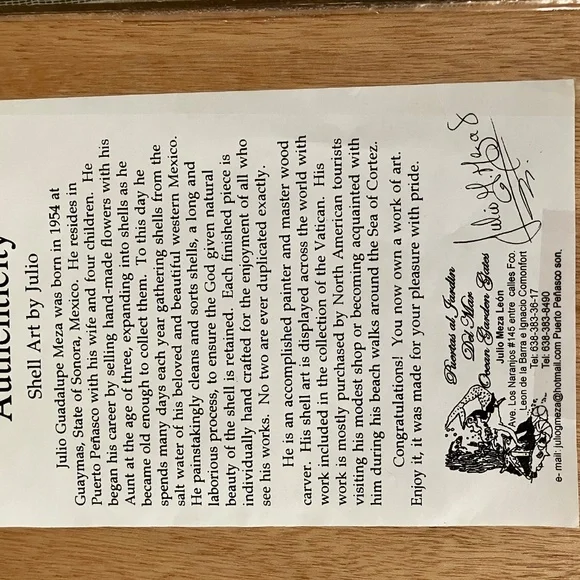 Authenticity
Shell Art by Julio
Julio Guadalupe Meza was born in 1954 at
Guaymas, State of Sonora, Mexico. He resides in
Puerto Peñasco with his wife and four children. He
began his career by selling hand-made flowers with his
Aunt at the age of three, expanding into shells as he
became old enough to collect them. To this day he
spends many days each year gathering shells from the
salt water of his beloved and beautiful western Mexico.
He painstakingly cleans and sorts shells, a long and
laborious process, to ensure the God given natural
beauty of the shell is retained. Each finished piece is
individually hand crafted for the enjoyment of all who
see his works. No two are ever duplicated exactly.
He is an accomplished painter and master wood
carver. His shell art is displayed across the world with
work included in the collection of the Vatican. His
work is mostly purchased by North American tourists
visiting his modest shop or becoming acquainted with
him during his beach walks around the Sea of Cortez.
Congratulations! You now own a work of art.
Enjoy it, it was made for your pleasure with pride.
Puertas al Jardin
Del Mar
Ocean Garden Gates
Julio Meza León
Ave. Los Naranjos #145 entre calles Fco.
Leon de la Barra e Ignacio Comonfort
Tel: 638-383-36-17
Tel: 638-383-6490
e- mail: juliogmeza@hotmail.com Puerto Peñasco son.
Julio G Meza L